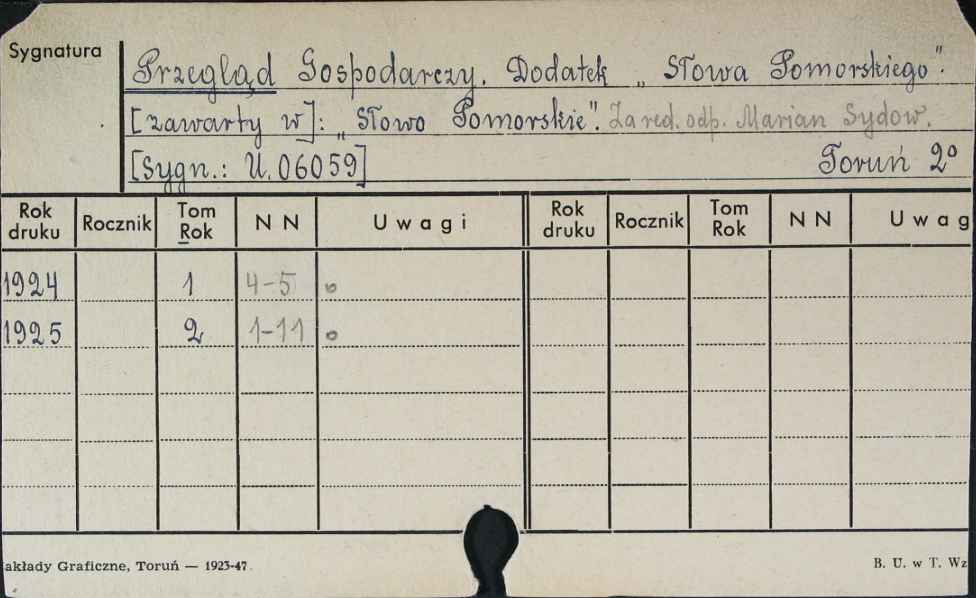 Sygnatura
Przegląd Gospodarczy. Dodatek „Słowa Pomorskiego".
[zawarty w]: „Słowo Pomorskie". Za red. odp. Marian Sydow.
[Sygn.: U. 06059] Toruń 2°
Rok druku Rocznik Tom Rok N N Uwagi Rok druku Rocznik Tom Rok N N Uwag
1924 1 4-5 o
1925 2 1-11 o
akłady Graficzne, Toruń — 1923-47. B. U. w T. Wz